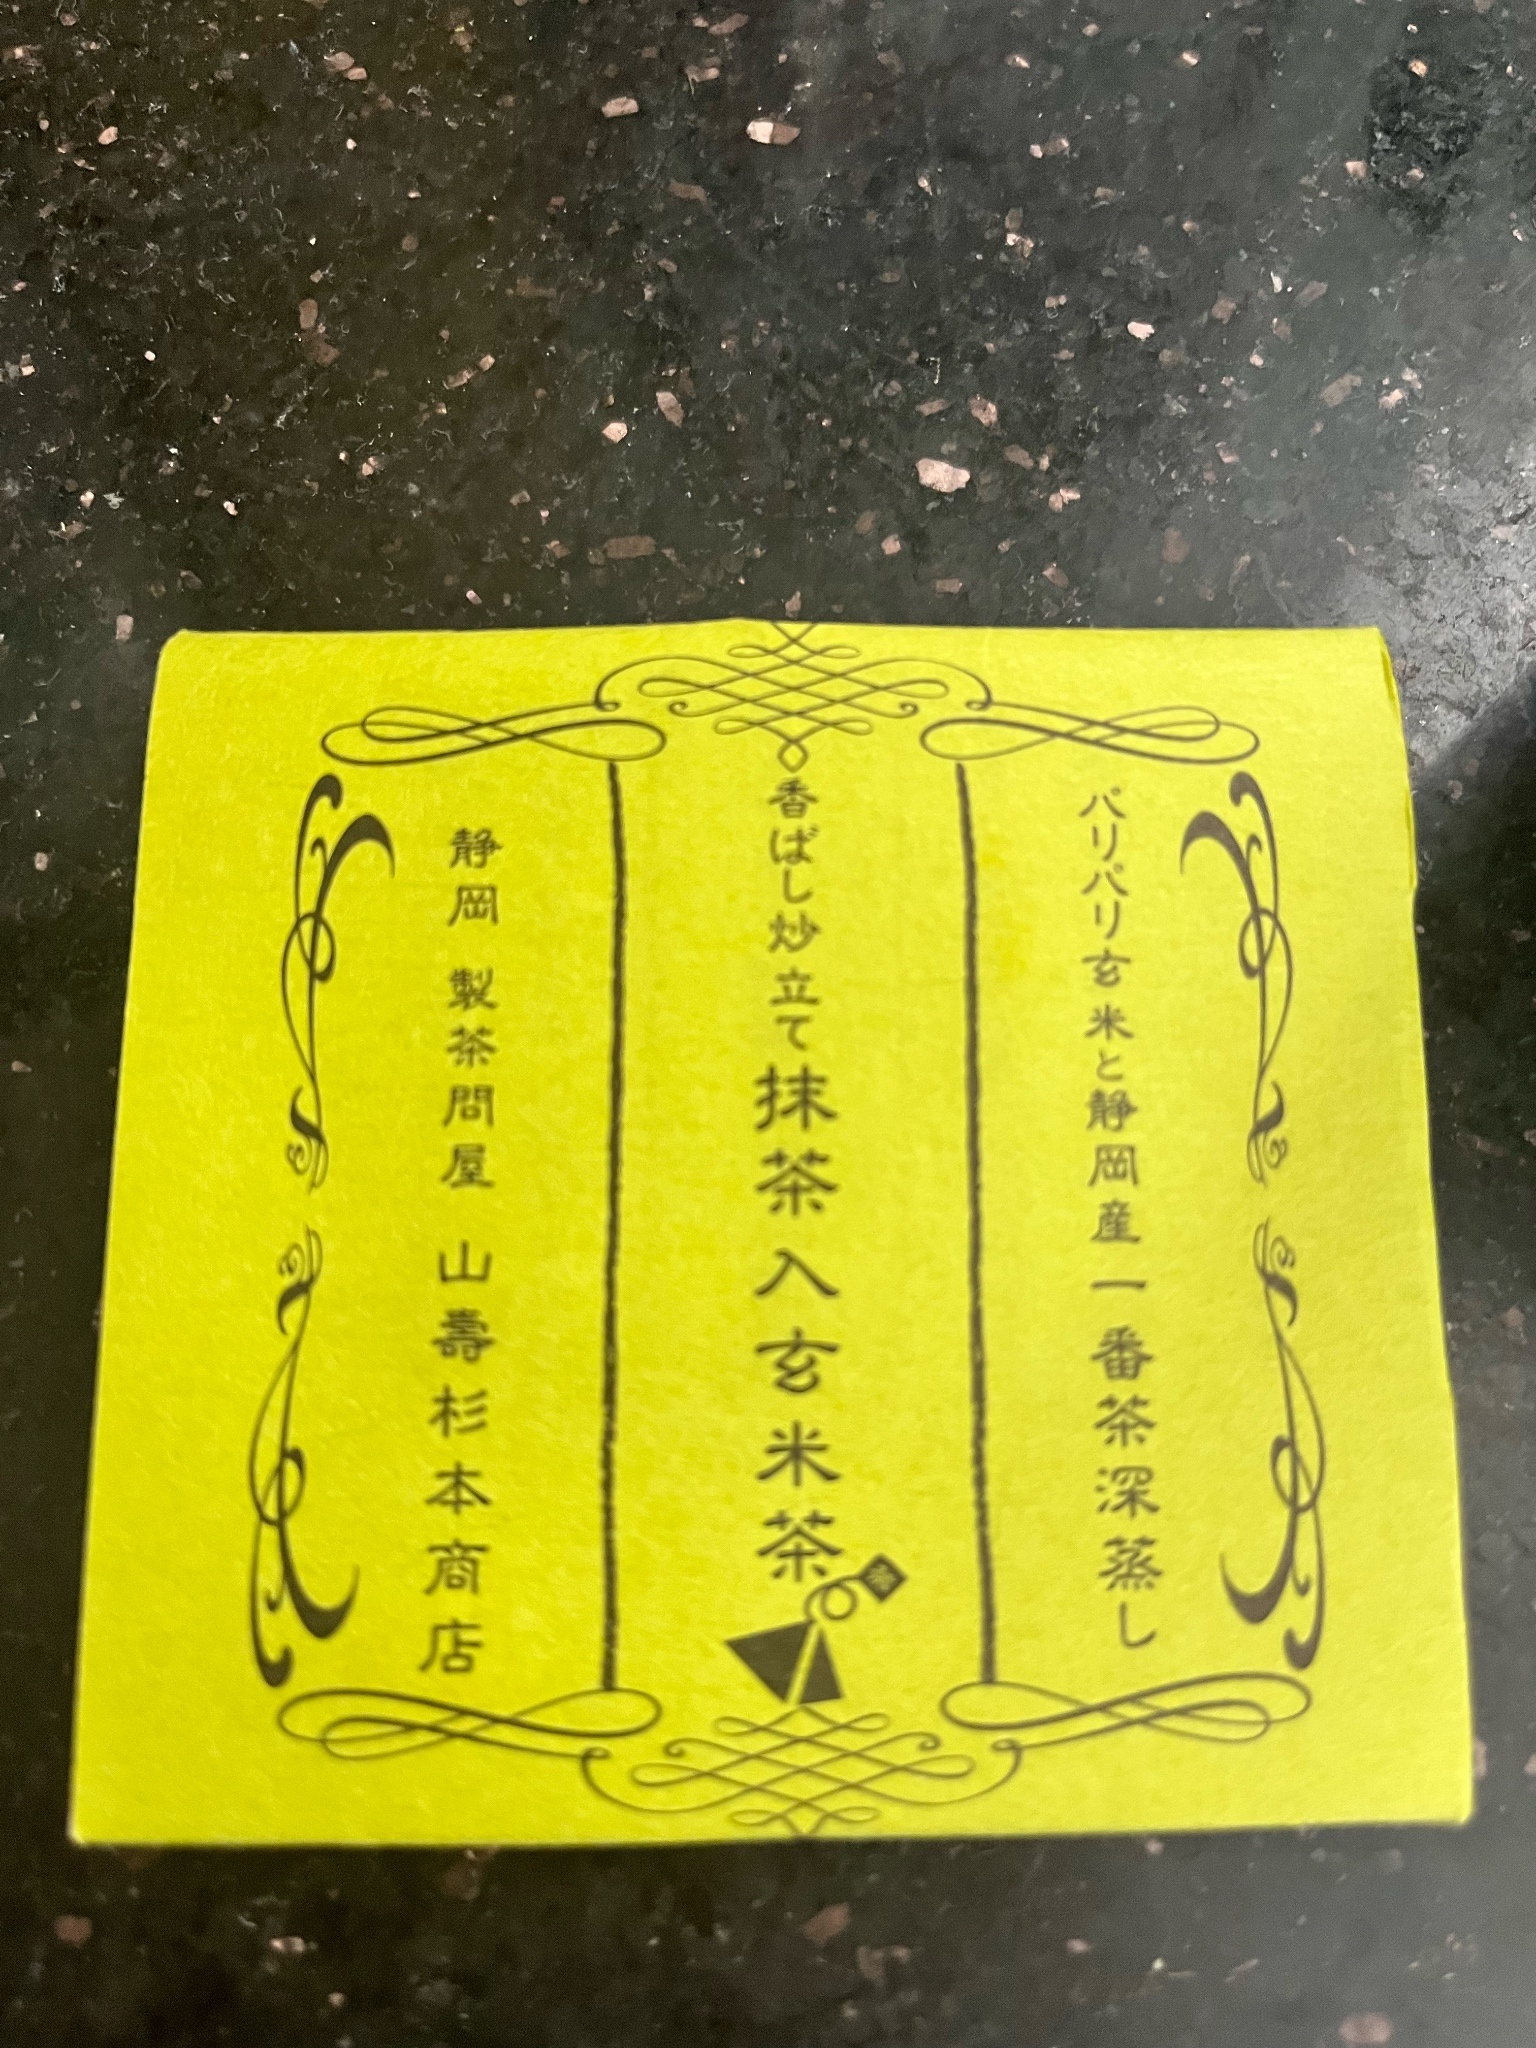 パリパリ玄米と静岡産一番茶深蒸し
香ばし炒立て抹茶入玄米茶
静岡 製茶問屋 山壽杉本商店